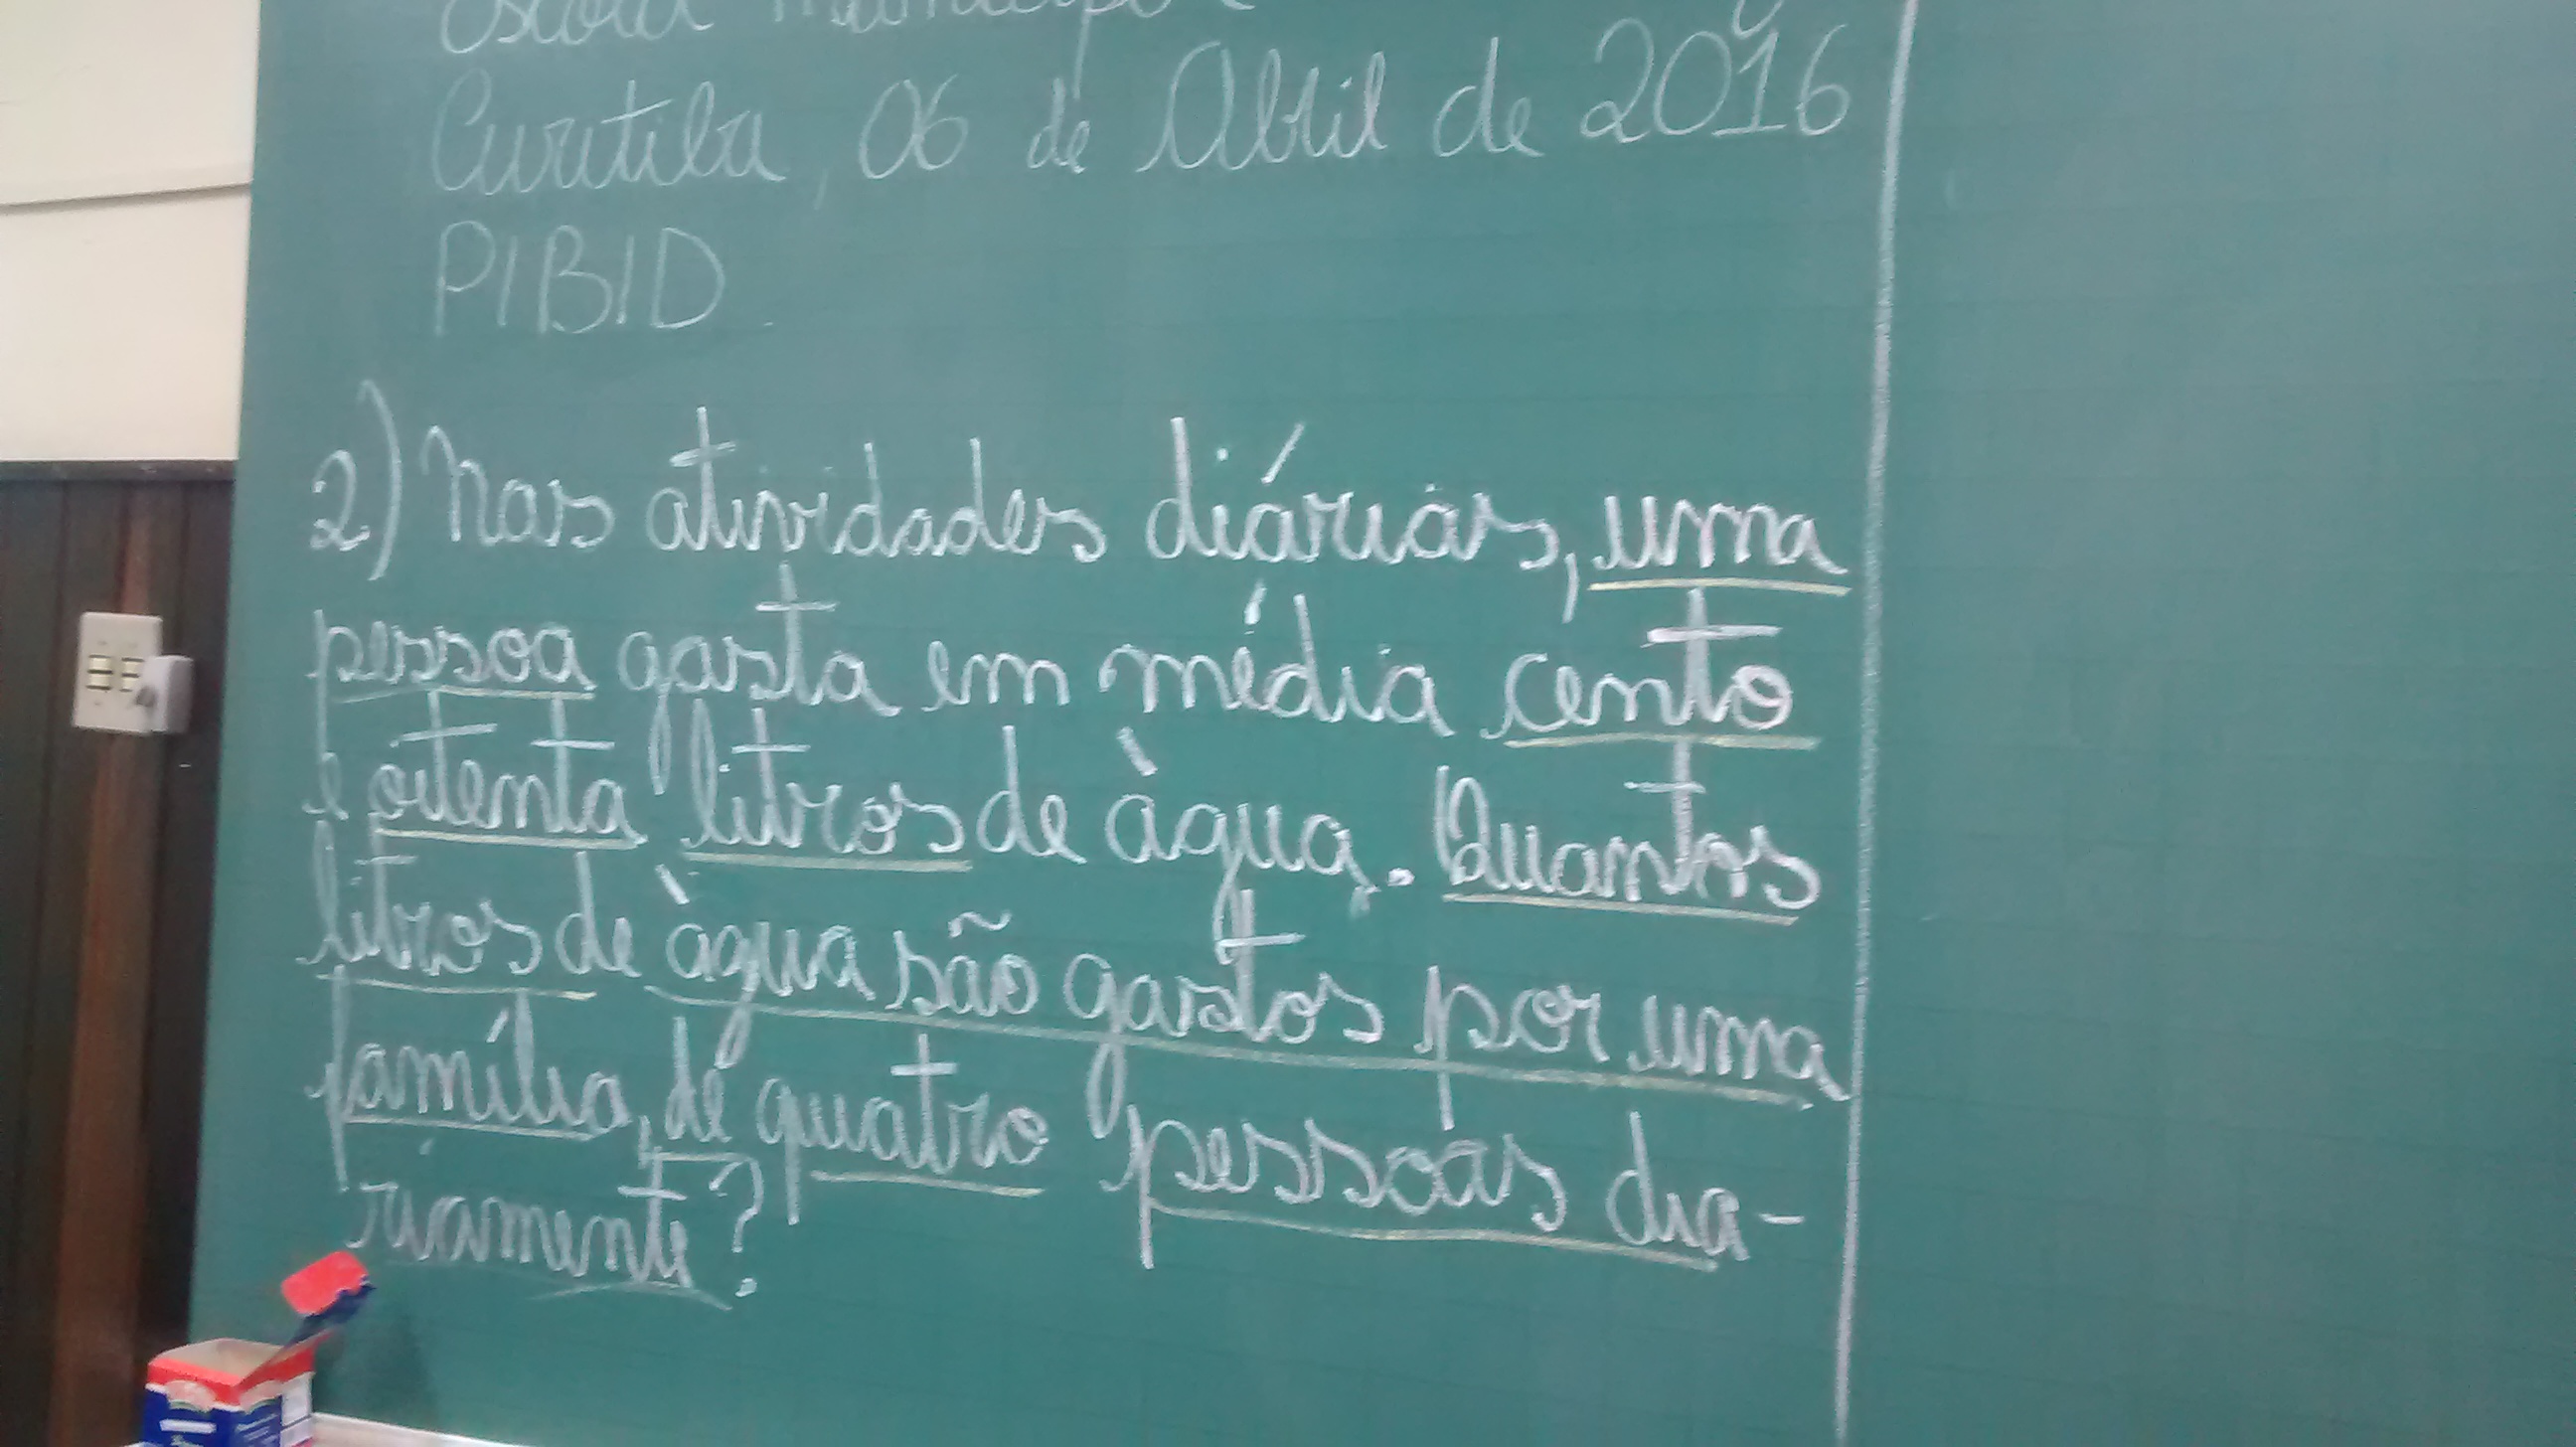 Escola Municipal
Curitiba, 06 de Abril de 2016
PIBID.
2) Nas atividades diárias, uma
pessoa gasta em média cento
e oitenta litros de àgua. Quantos
litros de àgua são gastos por uma
família, de quatro pessoas dia-
riamente?